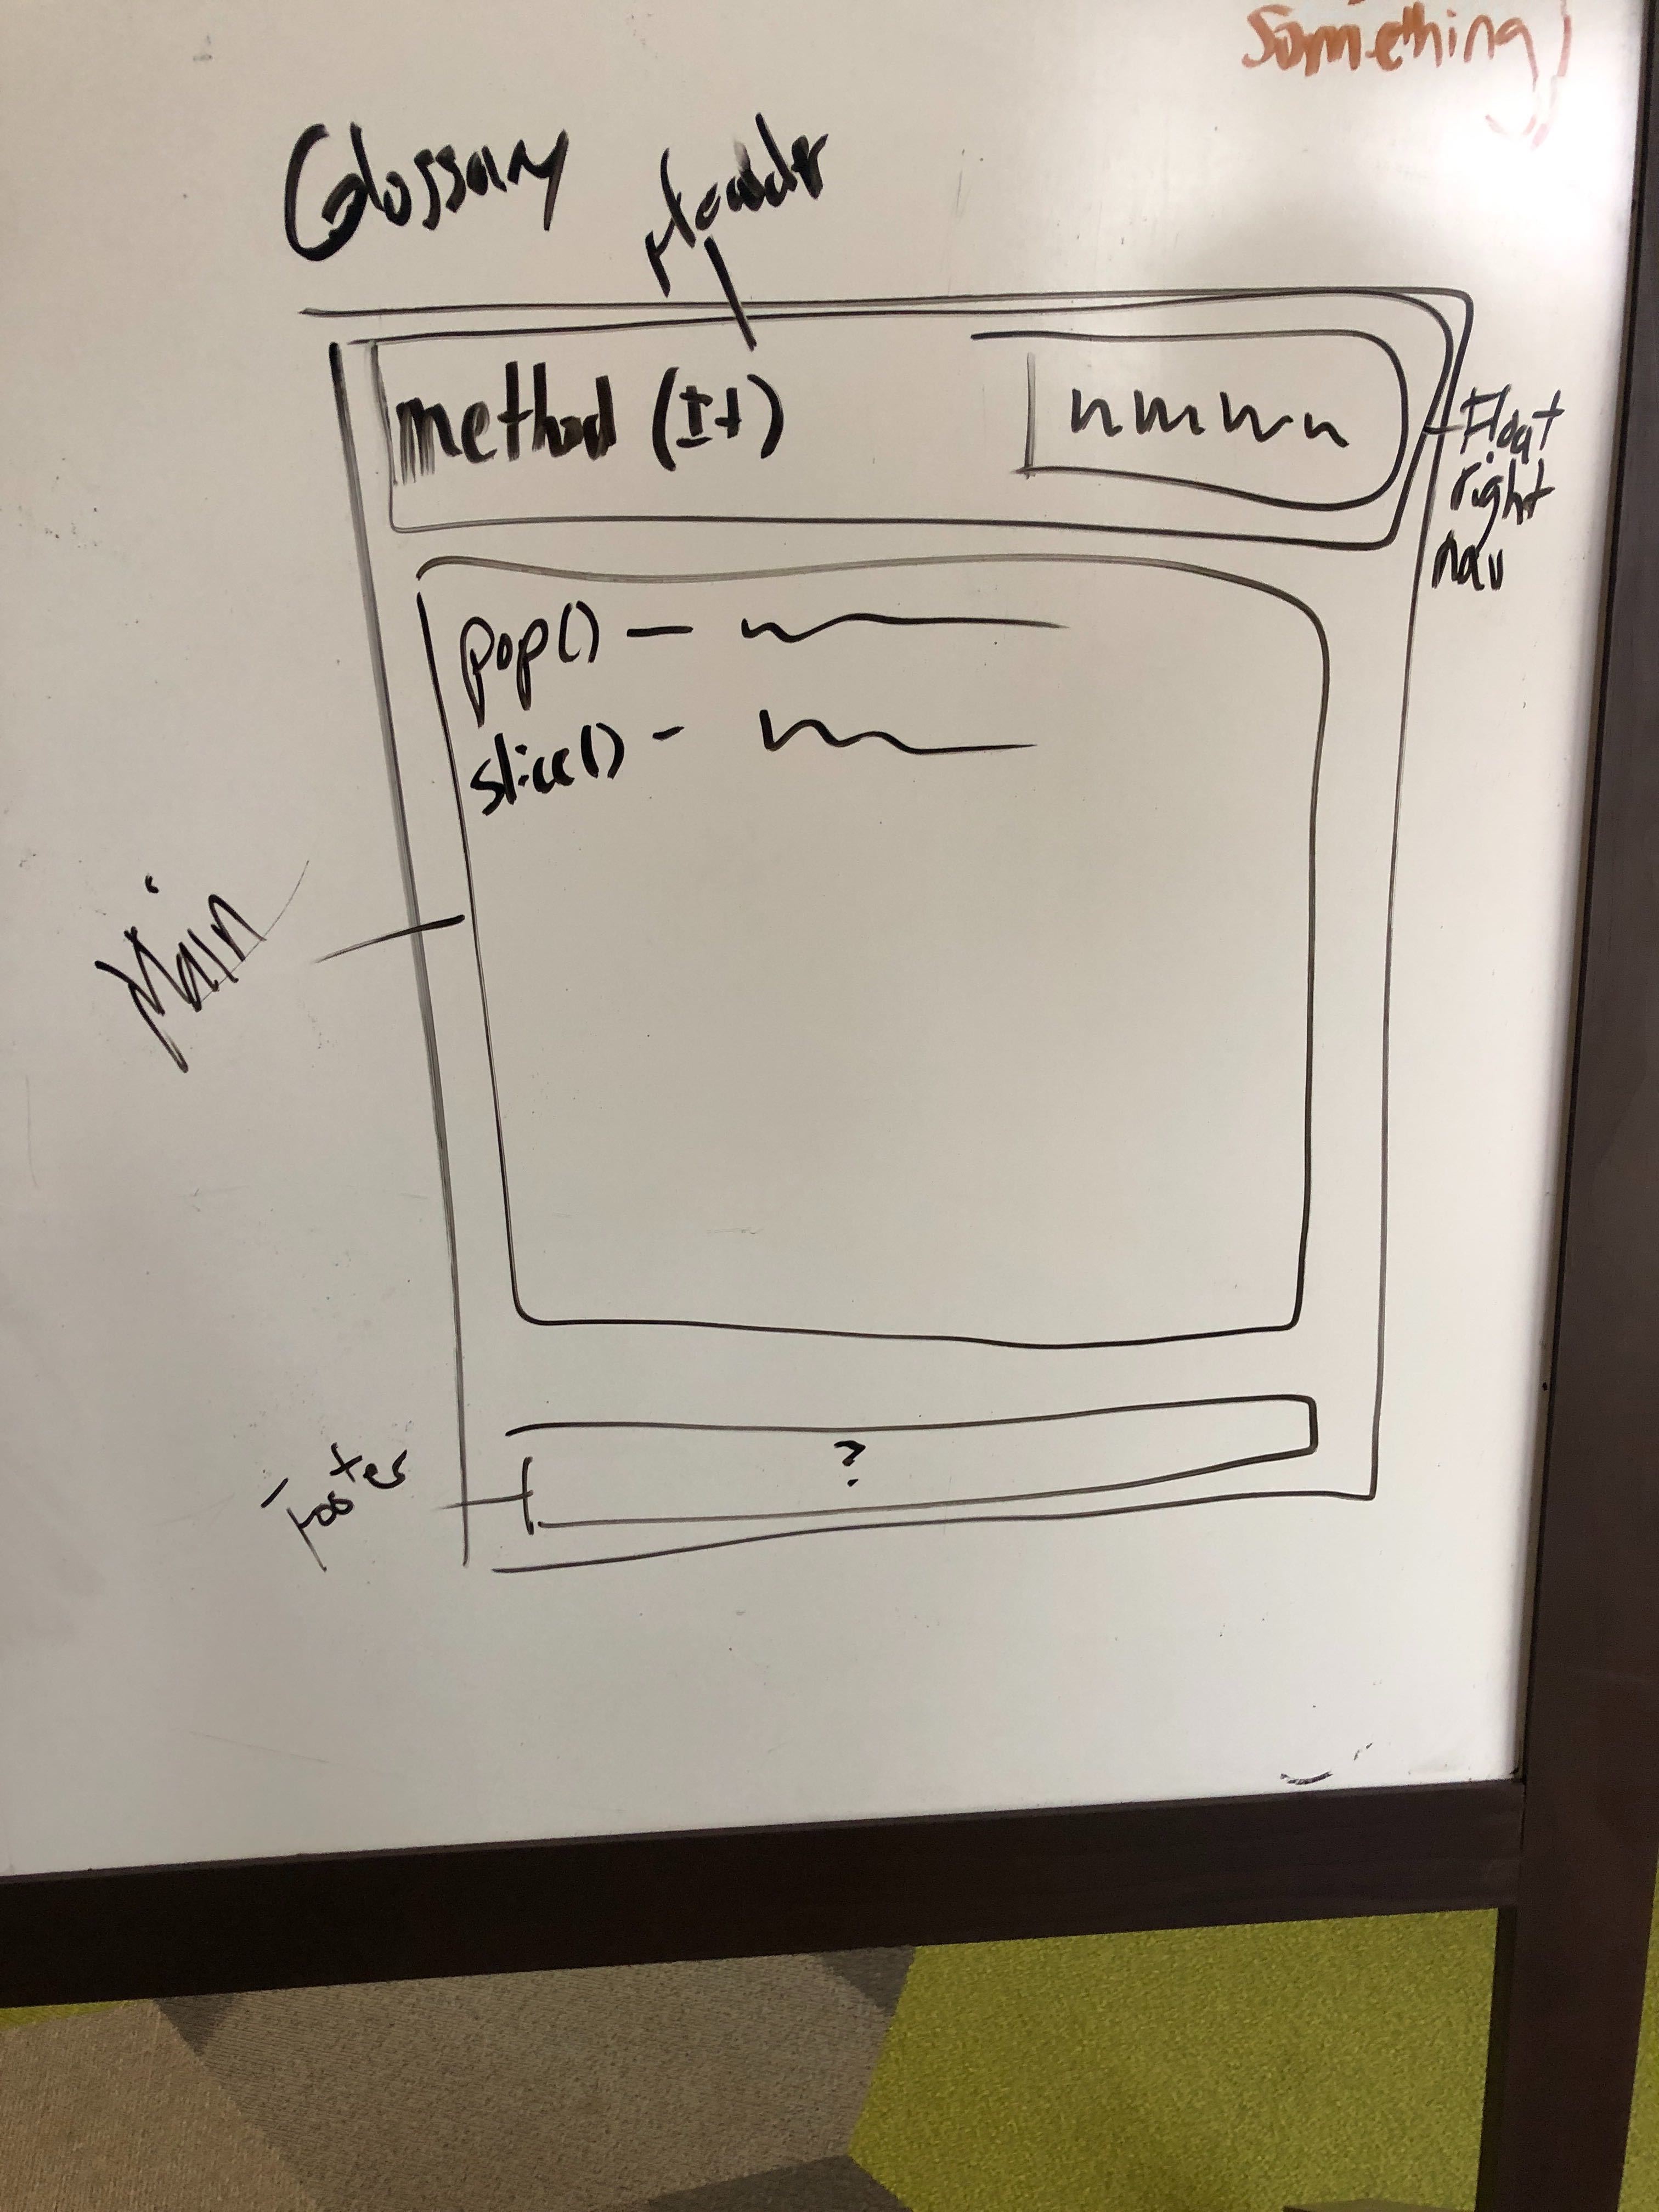 Something}
Glossary
Header
method (It)
Float
right
nav
pop() —
slice() -
Main
Footer
?